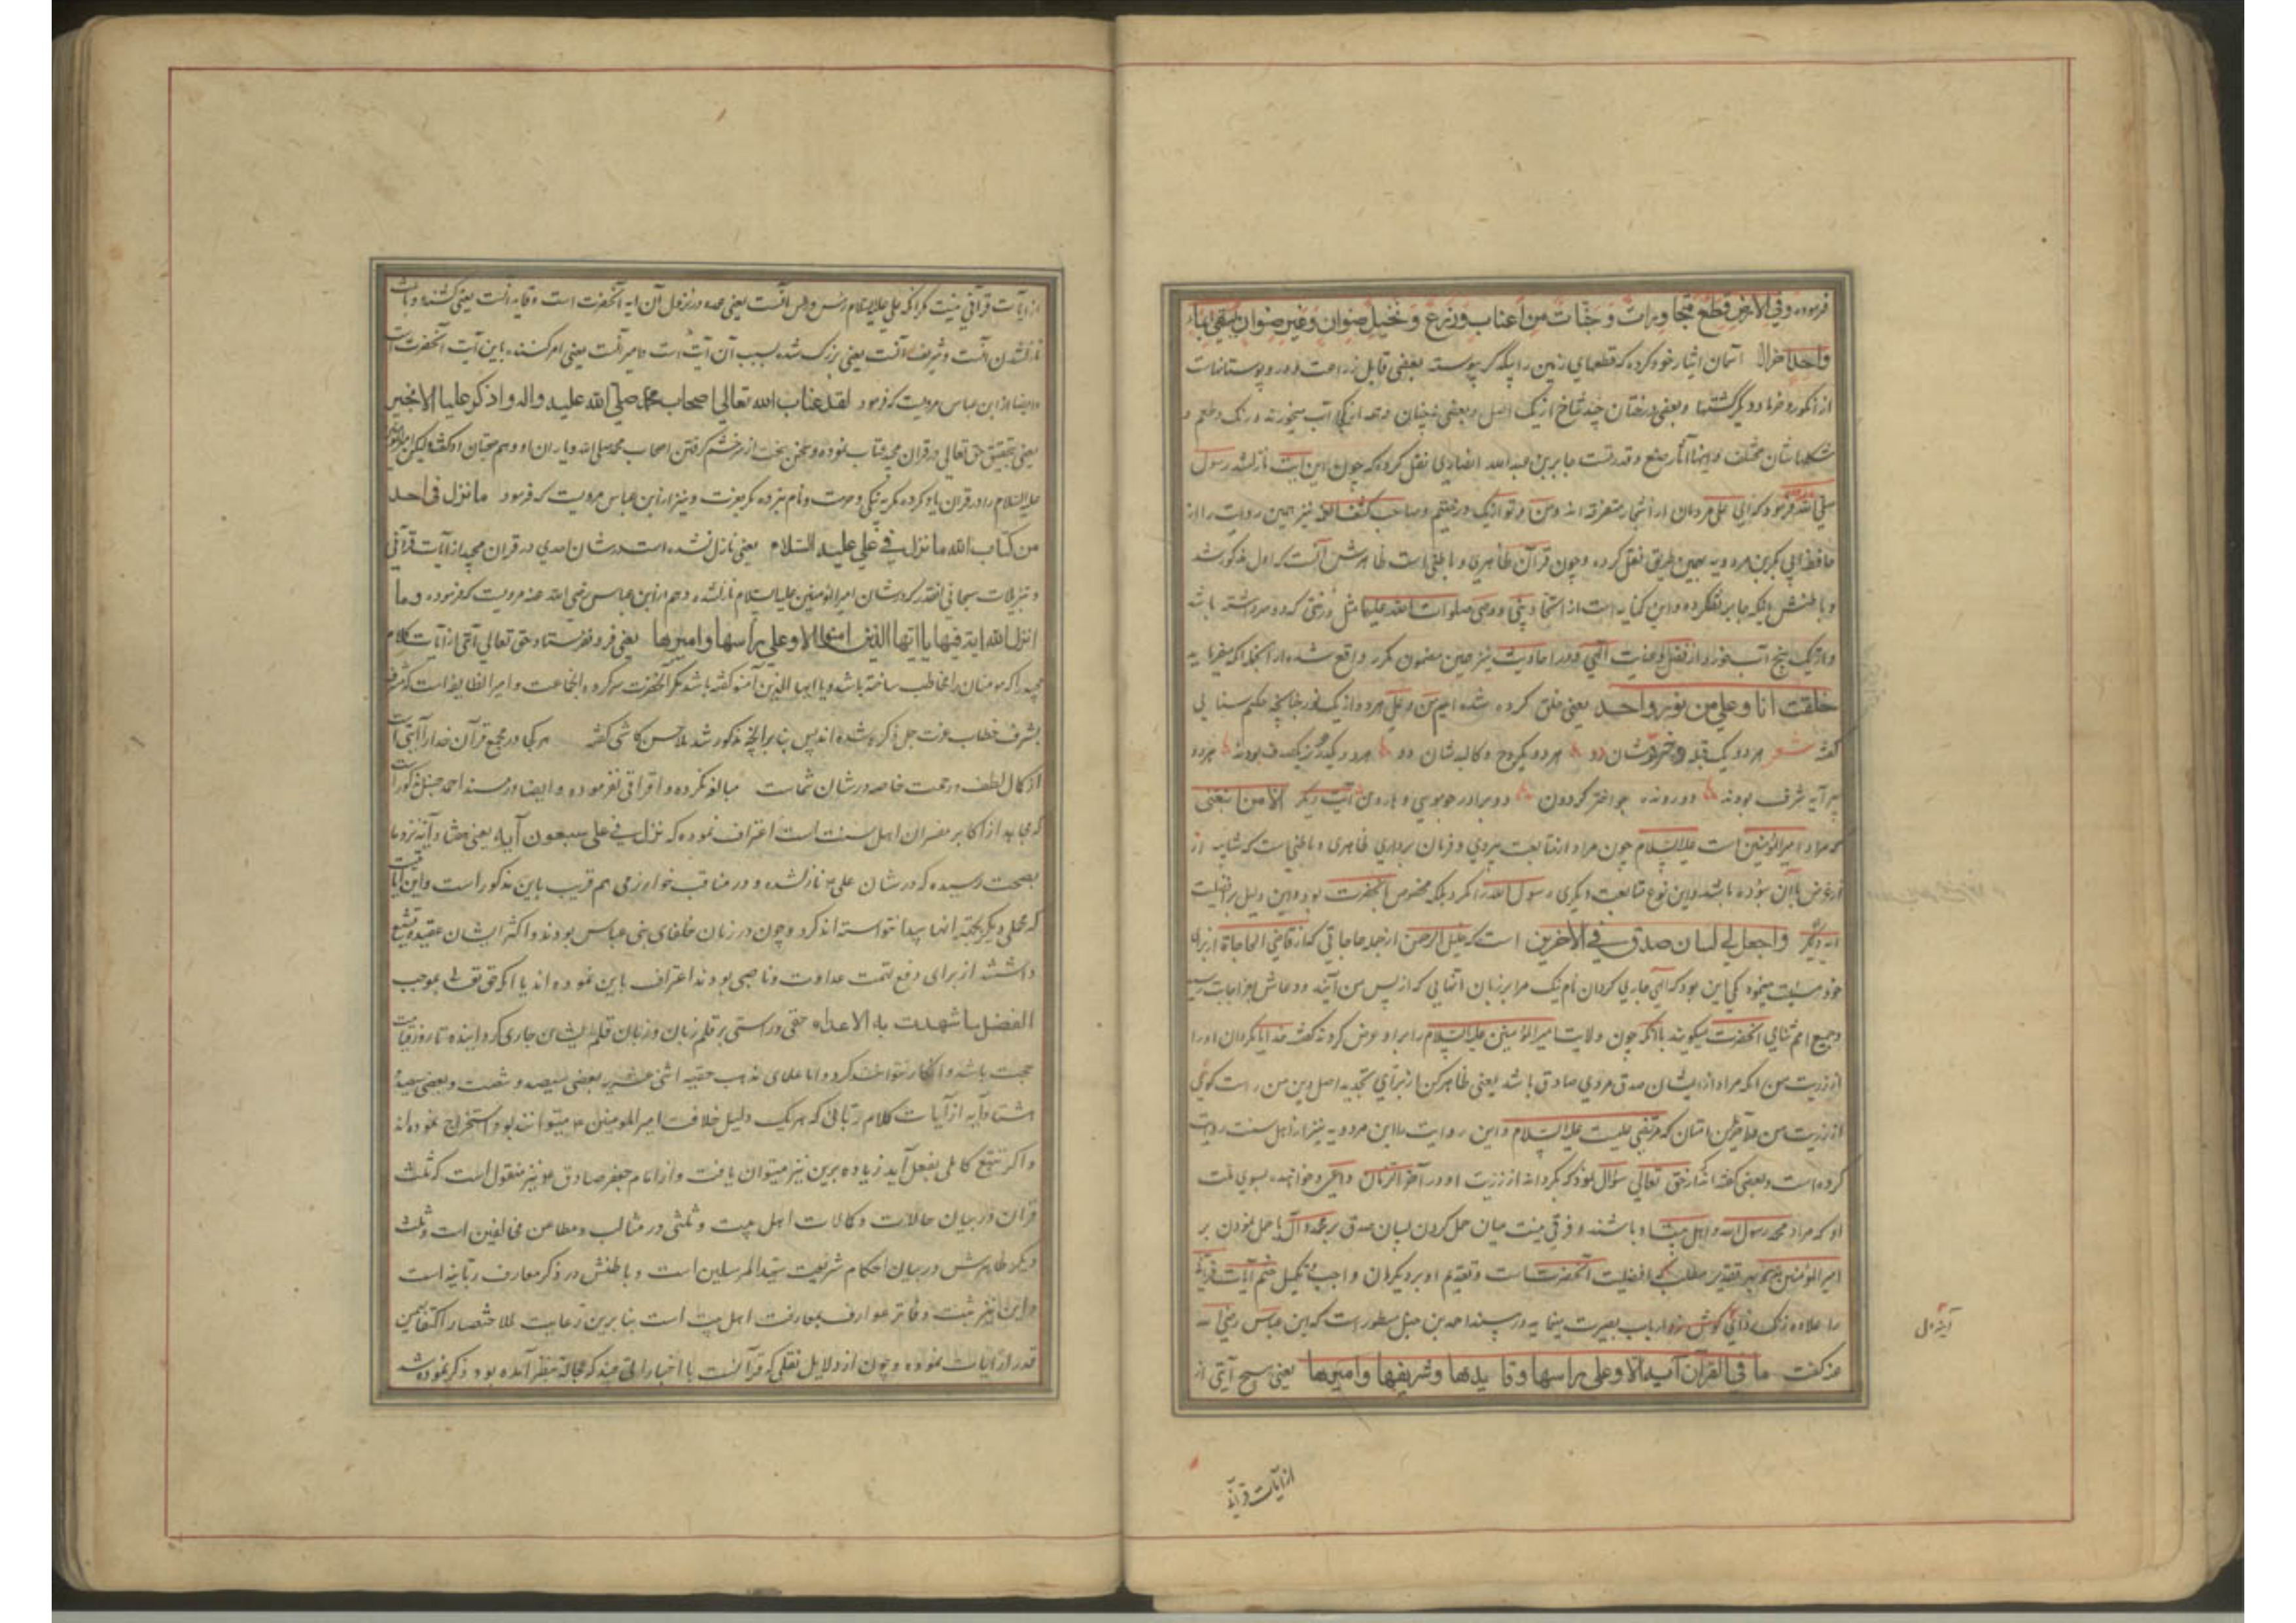 فرموده وفی الارض قطع متجاورات و جنات من اعناب وزرع و نخیل صنوان وغیر صنوان یسقی بماء
واحد خود کرده که قطعهای زمین را یکدگر پیوسته بعضی قابل زراعت و
از انکور و خرما و دیگر و بعضی درختان چند شاخ از یک اصل و بعضی نه چنان و همه از یک آب میخورند و رنک و طعم و
شکلهاشان مختلف و اینها آثار صنع و قدرتست جابر بن عبدالله انصاری نقل کرده که چون این آیت نازلشد رسول
صلی الله فرمود که ای علی مردمان از اشجار متفرقه اند و من و تو از یک درختیم و صاحب نیز همین روایت را از
حافظ ابی بکر بن مردویه بهمین طریق نقل کرده و چون قرآن ظاهری و باطنی است ظاهرش آنست که اول مذکور شد
و باطنش بانکه جابر نقل کرده و این کنایه است از اتحاد نبی و وصی صلوات الله علیها مثل درختی که دو سر داشته باشد
و از یک بیخ آب خورد از فضل و عنایت آلهی و در احادیث نیز همین مضمون مکرر واقع شده از آنجمله آنکه میفرماید
خلقت انا وعلی من نور واحد یعنی خلق کرده شده ایم من و علی هر دو از یک نور چنانچه حکیم سنایی
گفته شعر هر دو یک قبله و خردشان دو هر دو یکروح و کالبدشان دو هر دو یکدر ز یکصدف بودند هر دو
پیرایه شرف بودند دو رونده چو اختر گردون دو برادر چو موسی و هارون آیت دیگر الا من
که مراد امیرالمؤمنین است علیه السلام چون مراد از متابعت پیروی و فرمان برداری ظاهری و باطنی است که شایبه از
غرض باآن نبوده باشد و این نوع متابعت دیگری رسول الله را نکرد بلکه مخصوص آنحضرت بود و این دلیل بر افضلیت
آیه دیگر واجعل لی لسان صدق فی الاخرین است که خلیل الرحمن از جمله حاجاتی که از قاضی الحاجاة از برای
خود مینمود یکی این بود که الهی جاری کردان نام نیک مرا بر زبان آنهایی که از پس من آیند و دعاش باجابت رسید
و جمیع امم ثنای آنحضرت میکویند باآنکه چون ولایت امیرالمؤمنین علیه السلام را بر او عرض کردند گفت خدایا بکردان او را
از ذریت من آنکه مراد از لسان صدق مردی صادق باشد یعنی ظاهر کن از برای تجدید اصل دین من راست کوی
از ذریت من که مرتضی علیست علیه السلام و این روایت را ابن مردویه نیز از اهل سنت روایت
کرده است و بعضی گفته اند از حق تعالی سؤال نمود که بکرداند از ذریت او در آخر الزمان داعی و خواننده بسوی ملت
او که مراد محمد رسول الله و اهل بیت او باشند و فرقی نیست میان حمل کردن لسان صدق بر محمد وآل یا حمل نمودن بر
امیرالمؤمنین بهر تقدیر مطلب که افضلیت آنحضرتست و تقدیم او بر دیکران واجب تکمیل ختم آیات قرآنی
را ارباب بصیرت مینماید در مسند احمد بن حنبل مسطور است که ابن عباس رضی الله
عنه کفت ما فی القرآن آیه الا وعلی راسها وقایدها وشریفها وامیرها یعنی هیچ آیتی از
آیه اول
از آیات قرآنی
از آیات قرآنی نیست مکر آنکه علی علیه السلام رئیس و آنست یعنی عمده در نزول آن آیه آنحضرت است و قاید آنست یعنی کشنده و باعث
نازلشدن آنست و شریف آنست یعنی بزرک شده بسبب آن آیت است و امیر آنست یعنی امر کننده باین آیت آنحضرت است
و ایضا از ابن عباس مرویست که فرمود لقد عتاب الله تعالی اصحاب محمد صلی الله علیه واله و اذکر علیا الا بخیر
یعنی بتحقیق حق تعالی در قران مجید عتاب نموده و سخن سخت از سر خشم کرفتن اصحاب محمد صلی الله و یاران او و هم صحبتان او کفته ولیکن امیرالمؤمنین
علیه السلام را در قران یاد نکرده مکر به نیکی و حرمت و نام نبرده مکر بعزت و نیز از ابن عباس مرویست که فرمود ما نزل فی احد
من کتاب الله ما نزل فی علی علیه السلام یعنی نازل نشده است در شان احدی در قران مجید از آیات قرآنی
و تنزیلات سبحانی آنقدر که در شان امیرالمؤمنین علیه السلام نازلشده و هم از ابن عباس رضی الله عنه مرویست که فرموده وما
انزل الله ایة فیها یا ایها الذین امنوا الا وعلی راسها وامیرها یعنی فرو نفرستاد حق تعالی آیتی از آیات کلام
مجید را که مومنان را مخاطب ساخته باشد و یا ایها الذین آمنو کفته باشد مکر آنحضرت سرکرده آنجماعت و امیر آنطایفه است که مشرف
بشرف خطاب عزت جل ذکره شده اند پس بنابر آنچه مذکور شد ملا حسن کاشی کفته هر کجا در مجمع قرآن خدا را آیتی است
از کمال لطف و رحمت خاصه در شان شماست مبالغه نکرده و اغراقی نفرموده و ایضا در مسند احمد حنبل مذکور است
که مجاهد از اکابر مفسران اهل سنت است اعتراف نموده که نزل فی علی سبعون آیة یعنی هفتاد آیه نزد ما
بصحت رسیده که در شان علی ع نازلشده و در مناقب خوارزمی هم قریب باین مذکور است واین
که محملی دیکر بجهته انها پیدا نتوانسته اند کرد و چون در زمان خلفای بنی عباس بودند و اکثر ایشان عقیده تشیع
داشتند از برای دفع تهمت عداوت و ناصبی بودند اعتراف باین نموده اند یا آنکه حق تعالی بموجب
الفضل ما شهدت به الاعداء حقی و راستی بر قلم زبان و زبان قلم ایشان جاری کردانیده تا روز قیامت
حجت باشد و انکار نتوانند کرد و اما علمای مذهب حقیه اثنی عشریه بعضی سیصد و شصت و بعضی سیصد
هشتاد آیه از آیات کلام ربانی که هر یک دلیل خلافت امیرالمومنین ع میتوانند بود استخراج نموده اند
و اکر تتبع کاملی بفعل آید زیاده برین نیز میتوان یافت و از امام جعفر صادق ع نیز منقول است که ثلث
قرآن در بیان حالات و کمالات اهل بیت و ثلثی در مثالب و مطاعن مخالفین است و ثلث
دیکر ظاهرش در بیان احکام شریعت سید المرسلین است و باطنش در ذکر معارف ربانیه است
و این نیز مثبت وفاتر عوارف بمعارف اهل بیت است بنابرین رعایت للاختصار اکتفا بهمین
قدر از آیات نموده و چون از دلایل نقلی که قرآنست با اخبار نظر آمده بود ذکر نموده شد